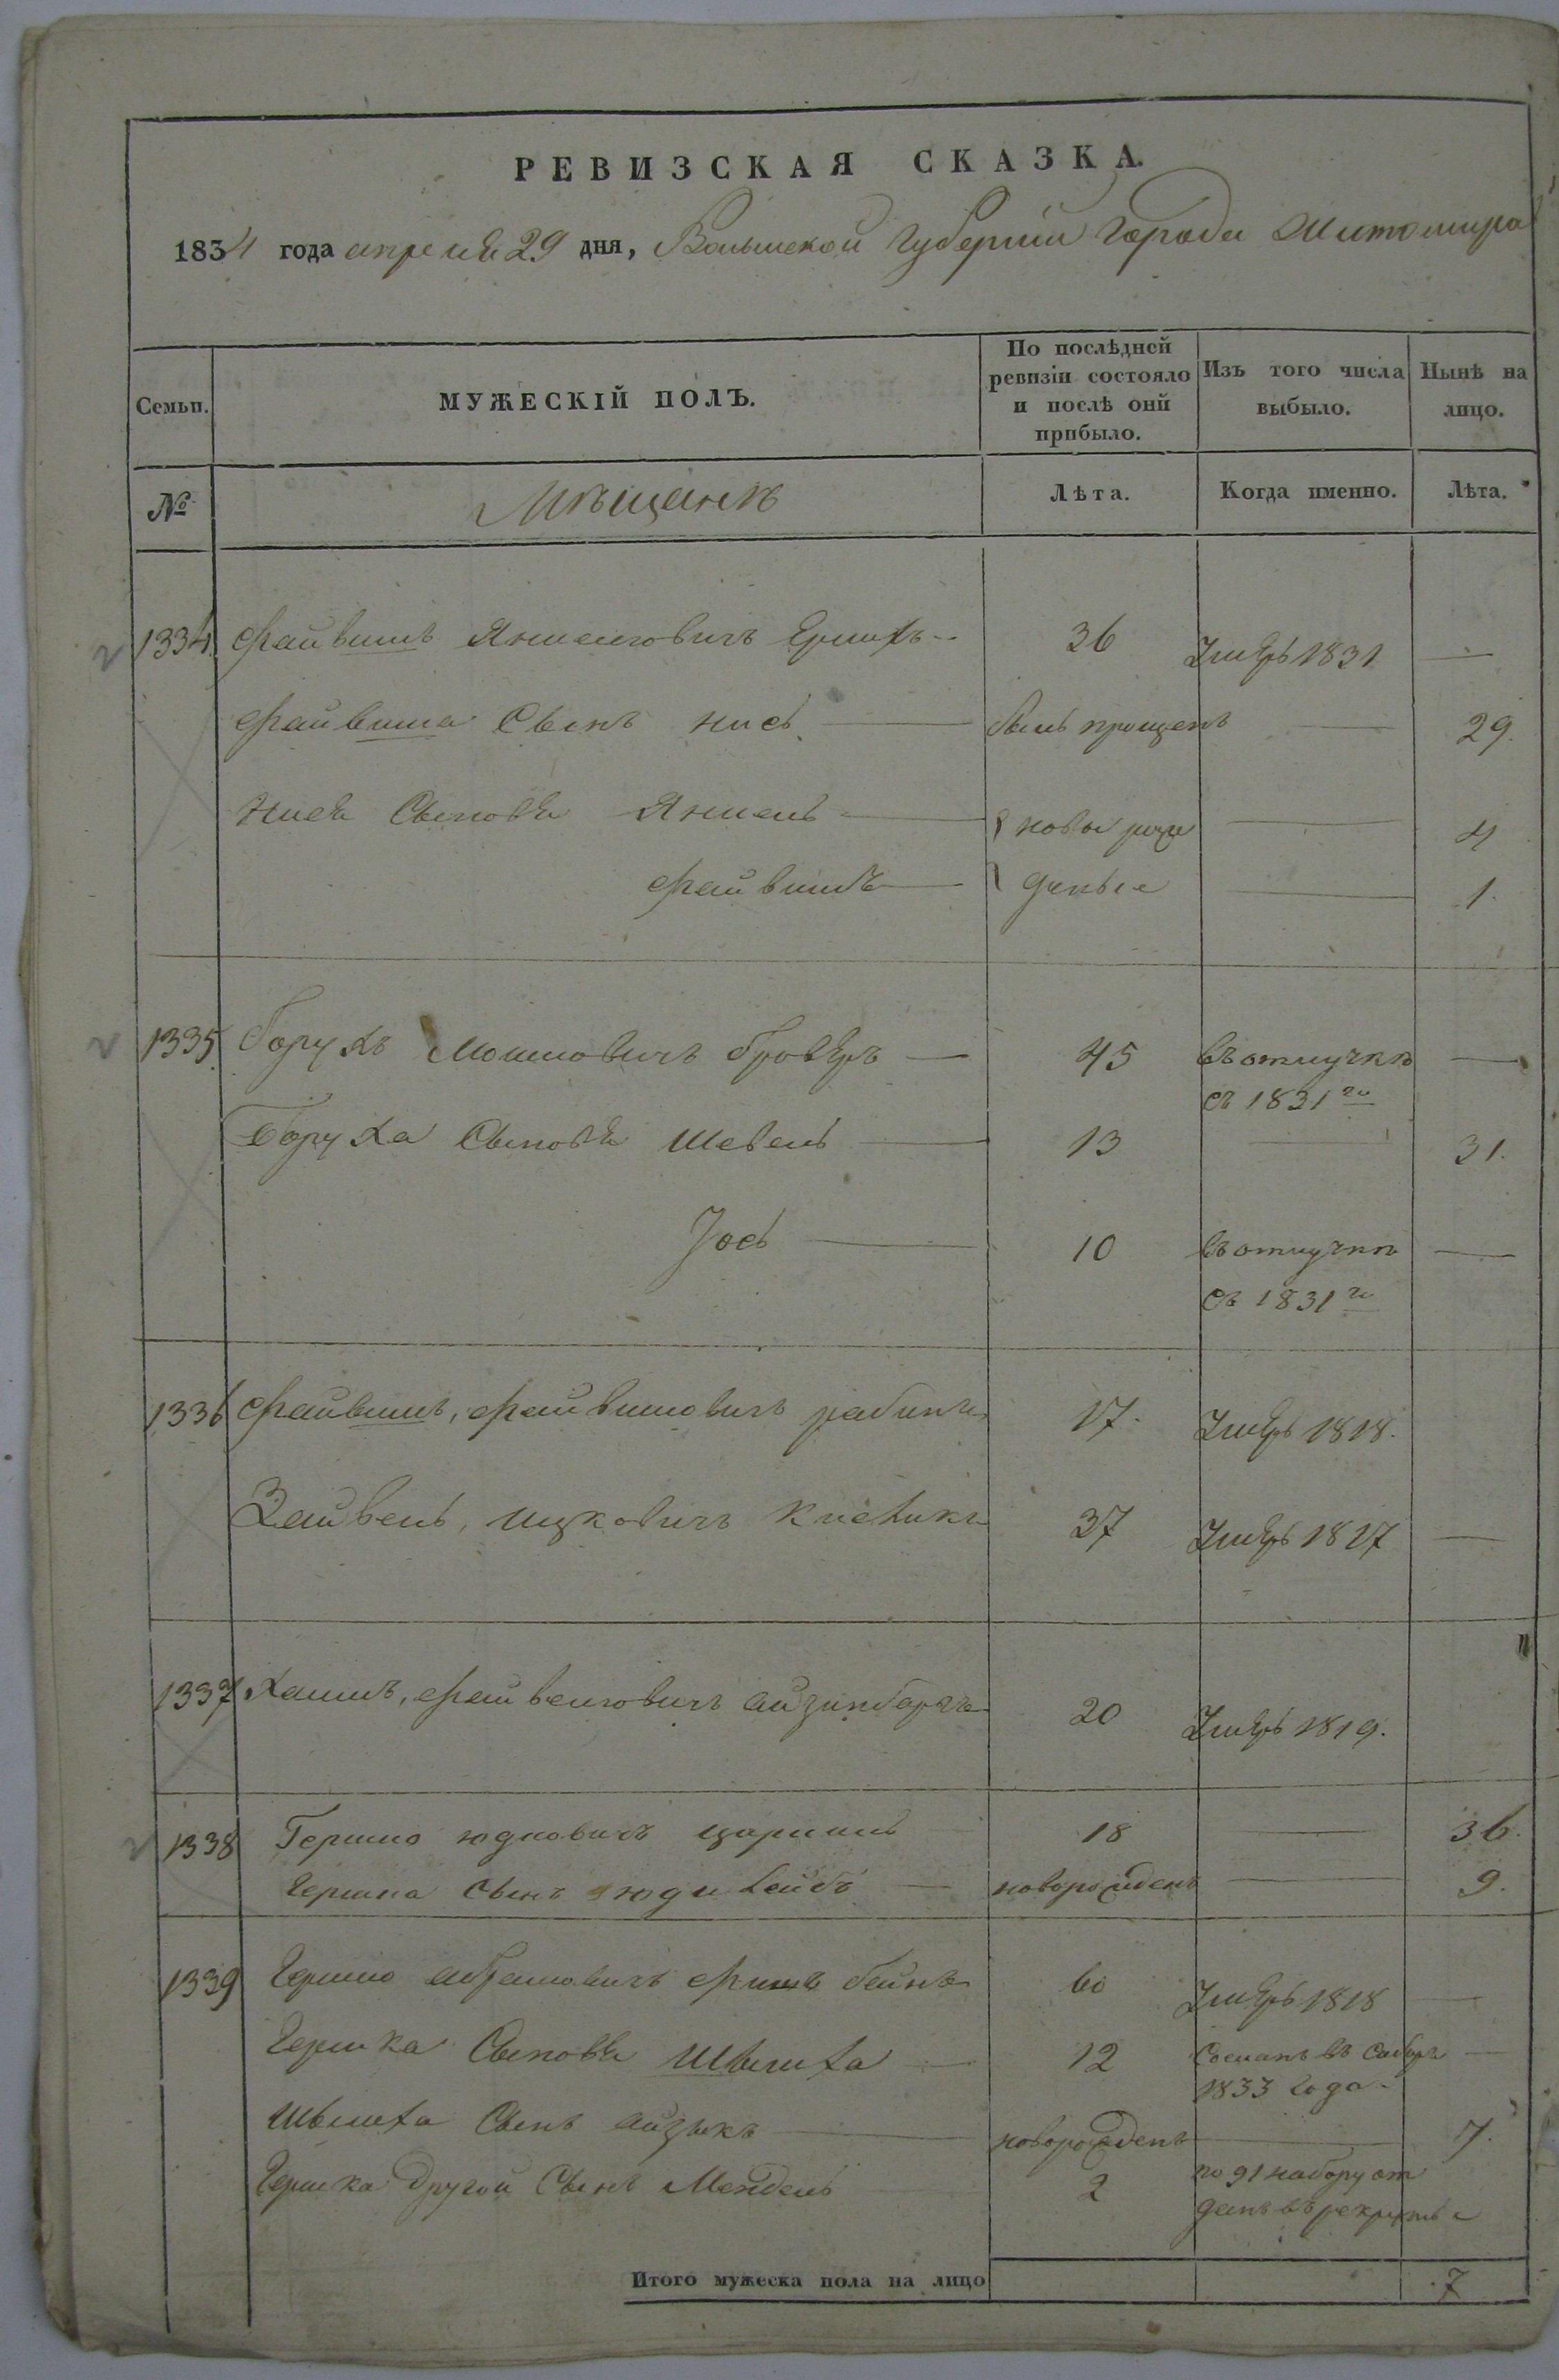 РЕВИЗСКАЯ СКАЗКА.
1834 года апреля 29 дня, Волынской Губернии Города Житомира
Семьи.
МУЖЕСКІЙ ПОЛЪ.
По послѣдней ревизіи состояло и послѣ оній прибыло.
Изъ того числа выбыло.
Нынѣ на лицо.
№
Мѣщанъ
Лѣта.
Когда именно.
Лѣта.
1334 Файвишъ Яншелювичъ 36 1831 —
Файвиша Сынъ Нисъ — былъ прощенъ — 29.
Ниса Сыновья Яншель — новоро — 4
Файвишъ — жденые — 1.
1335 Борухъ Мошковичъ Броверъ — 45 въ отлучкѣ —
съ 1831 го
Боруха Сыновья Шевель — 13 — 31.
Іось — 10 въ отлучкѣ —
съ 1831 го
1336 Файвишъ, Файвишовичъ рабинъ 17. 1818.
Зайвель, Ицковичъ 37 1817 —
1337 Хаимъ, Файвелювичъ Айзинбергъ 20 1819.
1338 Гершко Юдковичъ 18 — 36.
Гершка Сынъ Юди Лейбъ — новорожденъ — 9.
1339 Гершко Абрамовичъ 60 1818 —
Гершка Сыновья Шлиома — 12 Сосланъ въ Сибирь —
1833 года
Сынъ Айзыкъ — новорожденъ — 7.
Гершка другой Сынъ Мендель 2 по 91 набору от
данъ въ рекруты
Итого мужеска пола на лицо 7